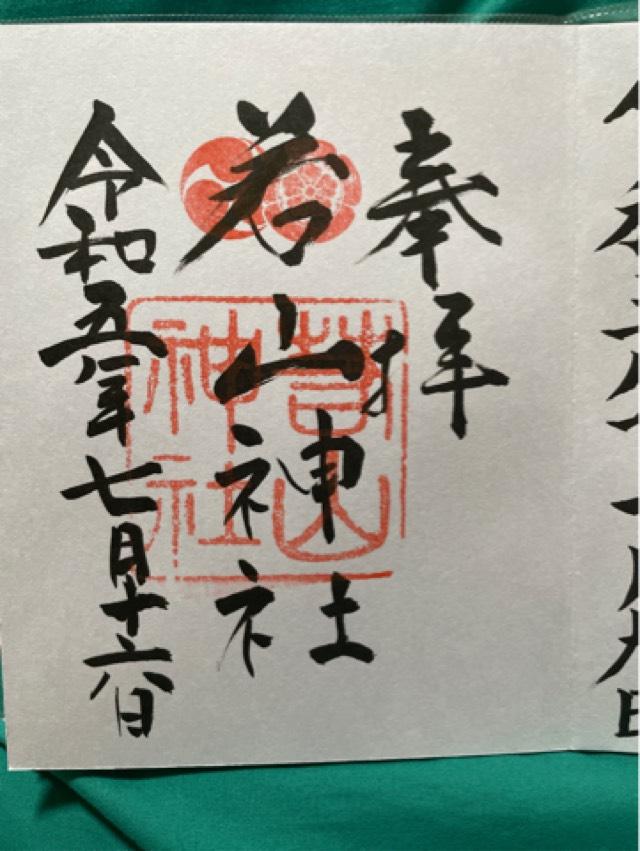 奉拝
若山神社
令和五年七月十六日
若山
神社